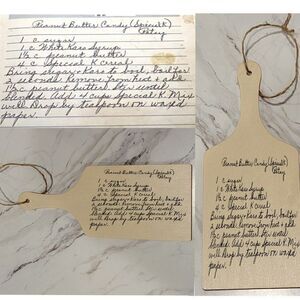 Peanut Butter Candy (Special K)
Patsy
1 c sugar
1 c White Karo Syrup
1½ c peanut butter
4 c Special K Cereal
Bring sugar & Karo to boil, boil for
a seconds. Remove from heat & add
1½ c peanut butter. Stir until
blended. Add 4 cups Special K. Mix
well. Drop by teaspoon on waxed
paper.
Peanut Butter Candy (Special K)
Patsy
1 c sugar
1 c White Karo Syrup
1½ c peanut butter
4 c Special K Cereal
Bring sugar & Karo to boil, boil for
a seconds. Remove from heat & add
1½ c peanut butter. Stir until
blended. Add 4 cups Special K. Mix
well. Drop by teaspoon on waxed
paper.
Peanut Butter Candy (Special K)
Patsy
1 c sugar
1 c White Karo Syrup
1½ c peanut butter
4 c Special K Cereal
Bring sugar & Karo to boil, boil for
a seconds. Remove from heat & add
1½ c peanut butter. Stir until
blended. Add 4 cups Special K. Mix
well. Drop by teaspoon on waxed
paper.